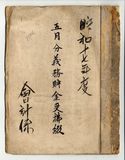 昭和十七年度
五月分義務貯金受払綴
会計係